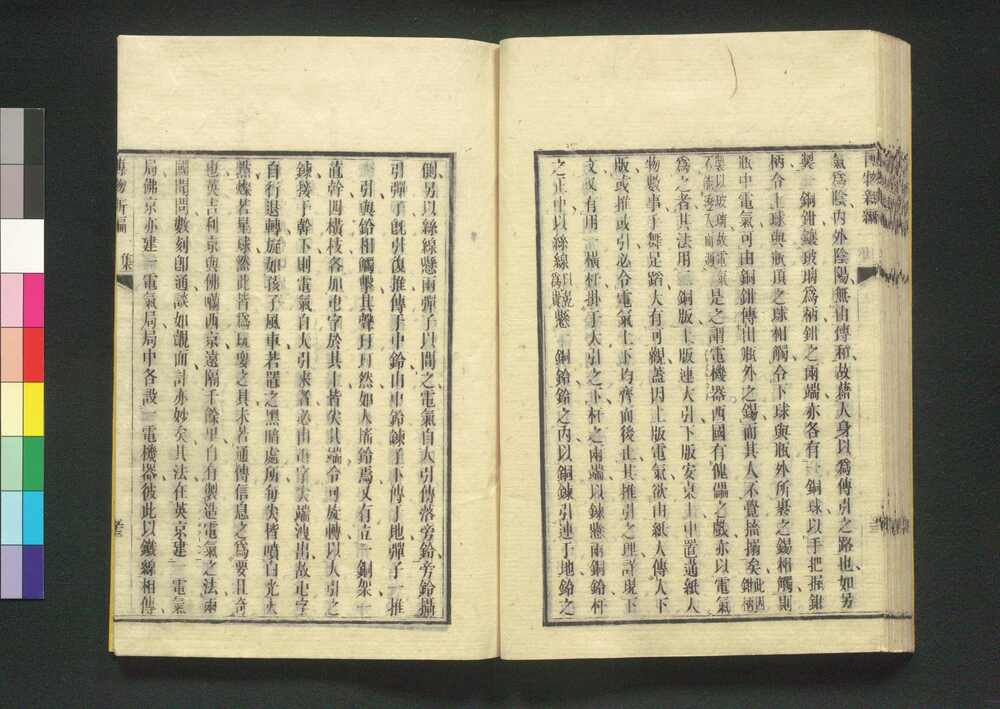 氣爲陰內外陰陽無由傳和故藉人身以爲傳引之路也如另
製一銅鉗鑲玻璃爲柄鉗之兩端亦各有一銅球以手把握鉗
柄令上球與瓶頂之球相觸令下球與瓶外所裹之錫相觸則
瓶中電氣可由銅鉗傳出瓶外之錫而其人不覺搐搦矣此因鉗柄
製以玻璃故電氣不能透入而過 是之謂電機器西國有傀儡之戲亦以電氣
爲之者其法用二銅版上版連大引下版安桌上中置通紙人
物數事手舞足蹈大有可觀蓋因上版電氣欲由紙人傳入下
版或推或引必令電氣上下均齊而後止其推引之理詳現下
文又有用一橫杆掛于大引之下杆之兩端以鍊懸兩銅鈴杆
之正中以絲線 懸一銅鈴鈴之內以銅鍊引連于地鈴之
側另以絲線懸兩彈子以間之電氣自大引傳落旁鈴旁鈴攝
引彈子既引復推傳于中鈴由中鈴鍊子下傳于地彈子一推
一引與鈴相觸擊其聲玎玎然如人搖鈴焉又有立一銅架一
直幹四橫枝各加屯字於其上者尖其端令可旋轉以大引之
鍊接于幹下則電氣自大引來者必由屯字尖端洩出故屯字
自行退轉旋如孩子風車若置之黑暗處所每尖皆噴白光火
燄燦若星球然此皆爲玩耍之具未若通傳信息之爲要且奇
也英吉利京與佛囒西京遠隔千餘里自有製造電氣之法兩
國聞問數刻卽通談如覿面計亦妙矣其法在英京建一電氣
局佛京亦建一電氣局局中各設一電機器彼此以鐵線相傳
博物新編 一集